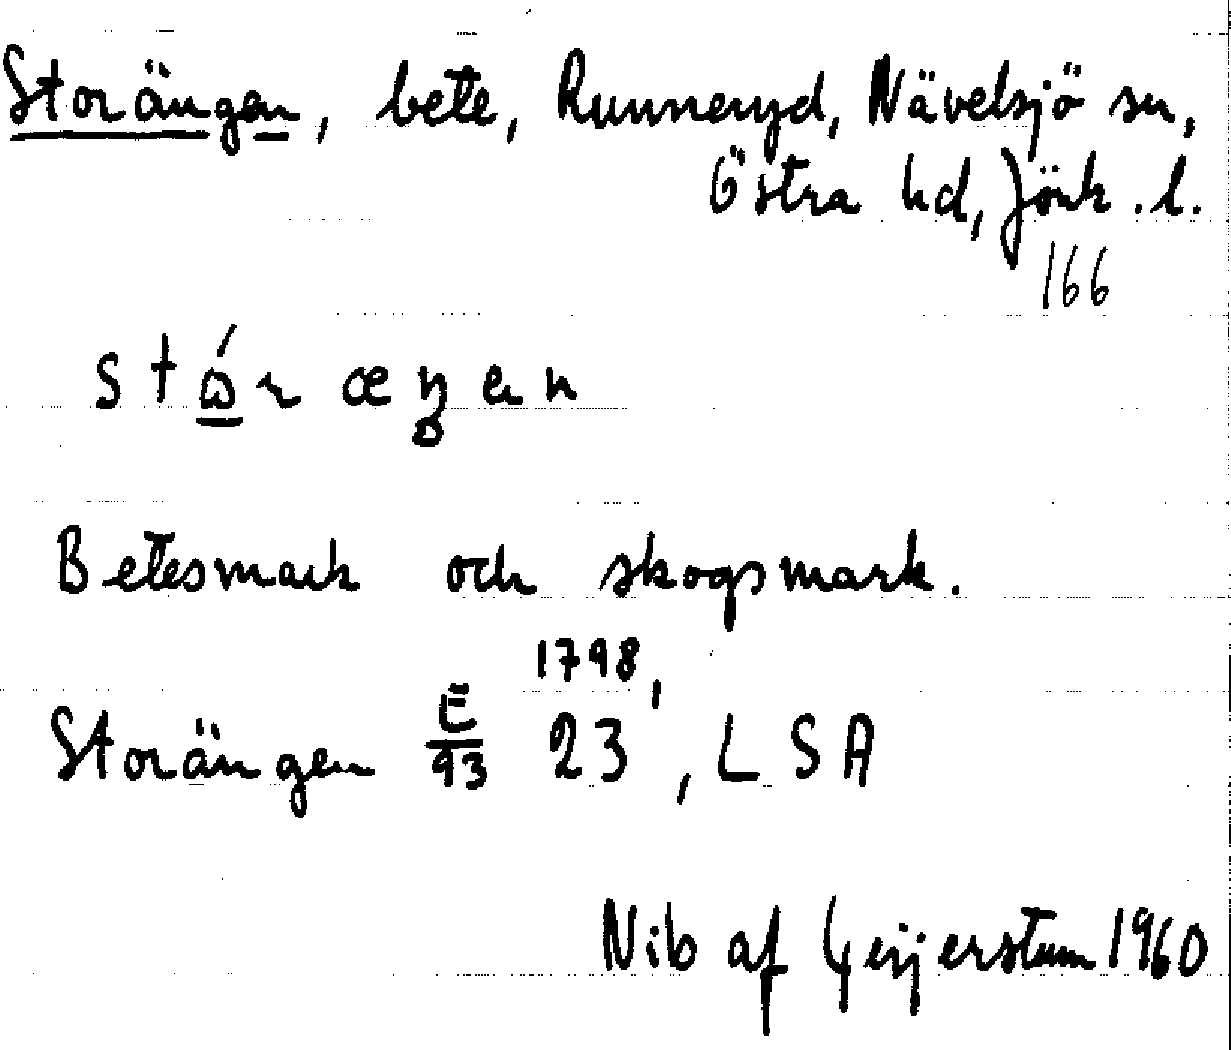 Storängen, bete, Runneryd, Nävelsjö sn,
Östra hd, Jönk. l.
166
Betesmark och skogsmark.
1798,
Storängen E/93 23, LSA
Nib af Geijerstam 1960